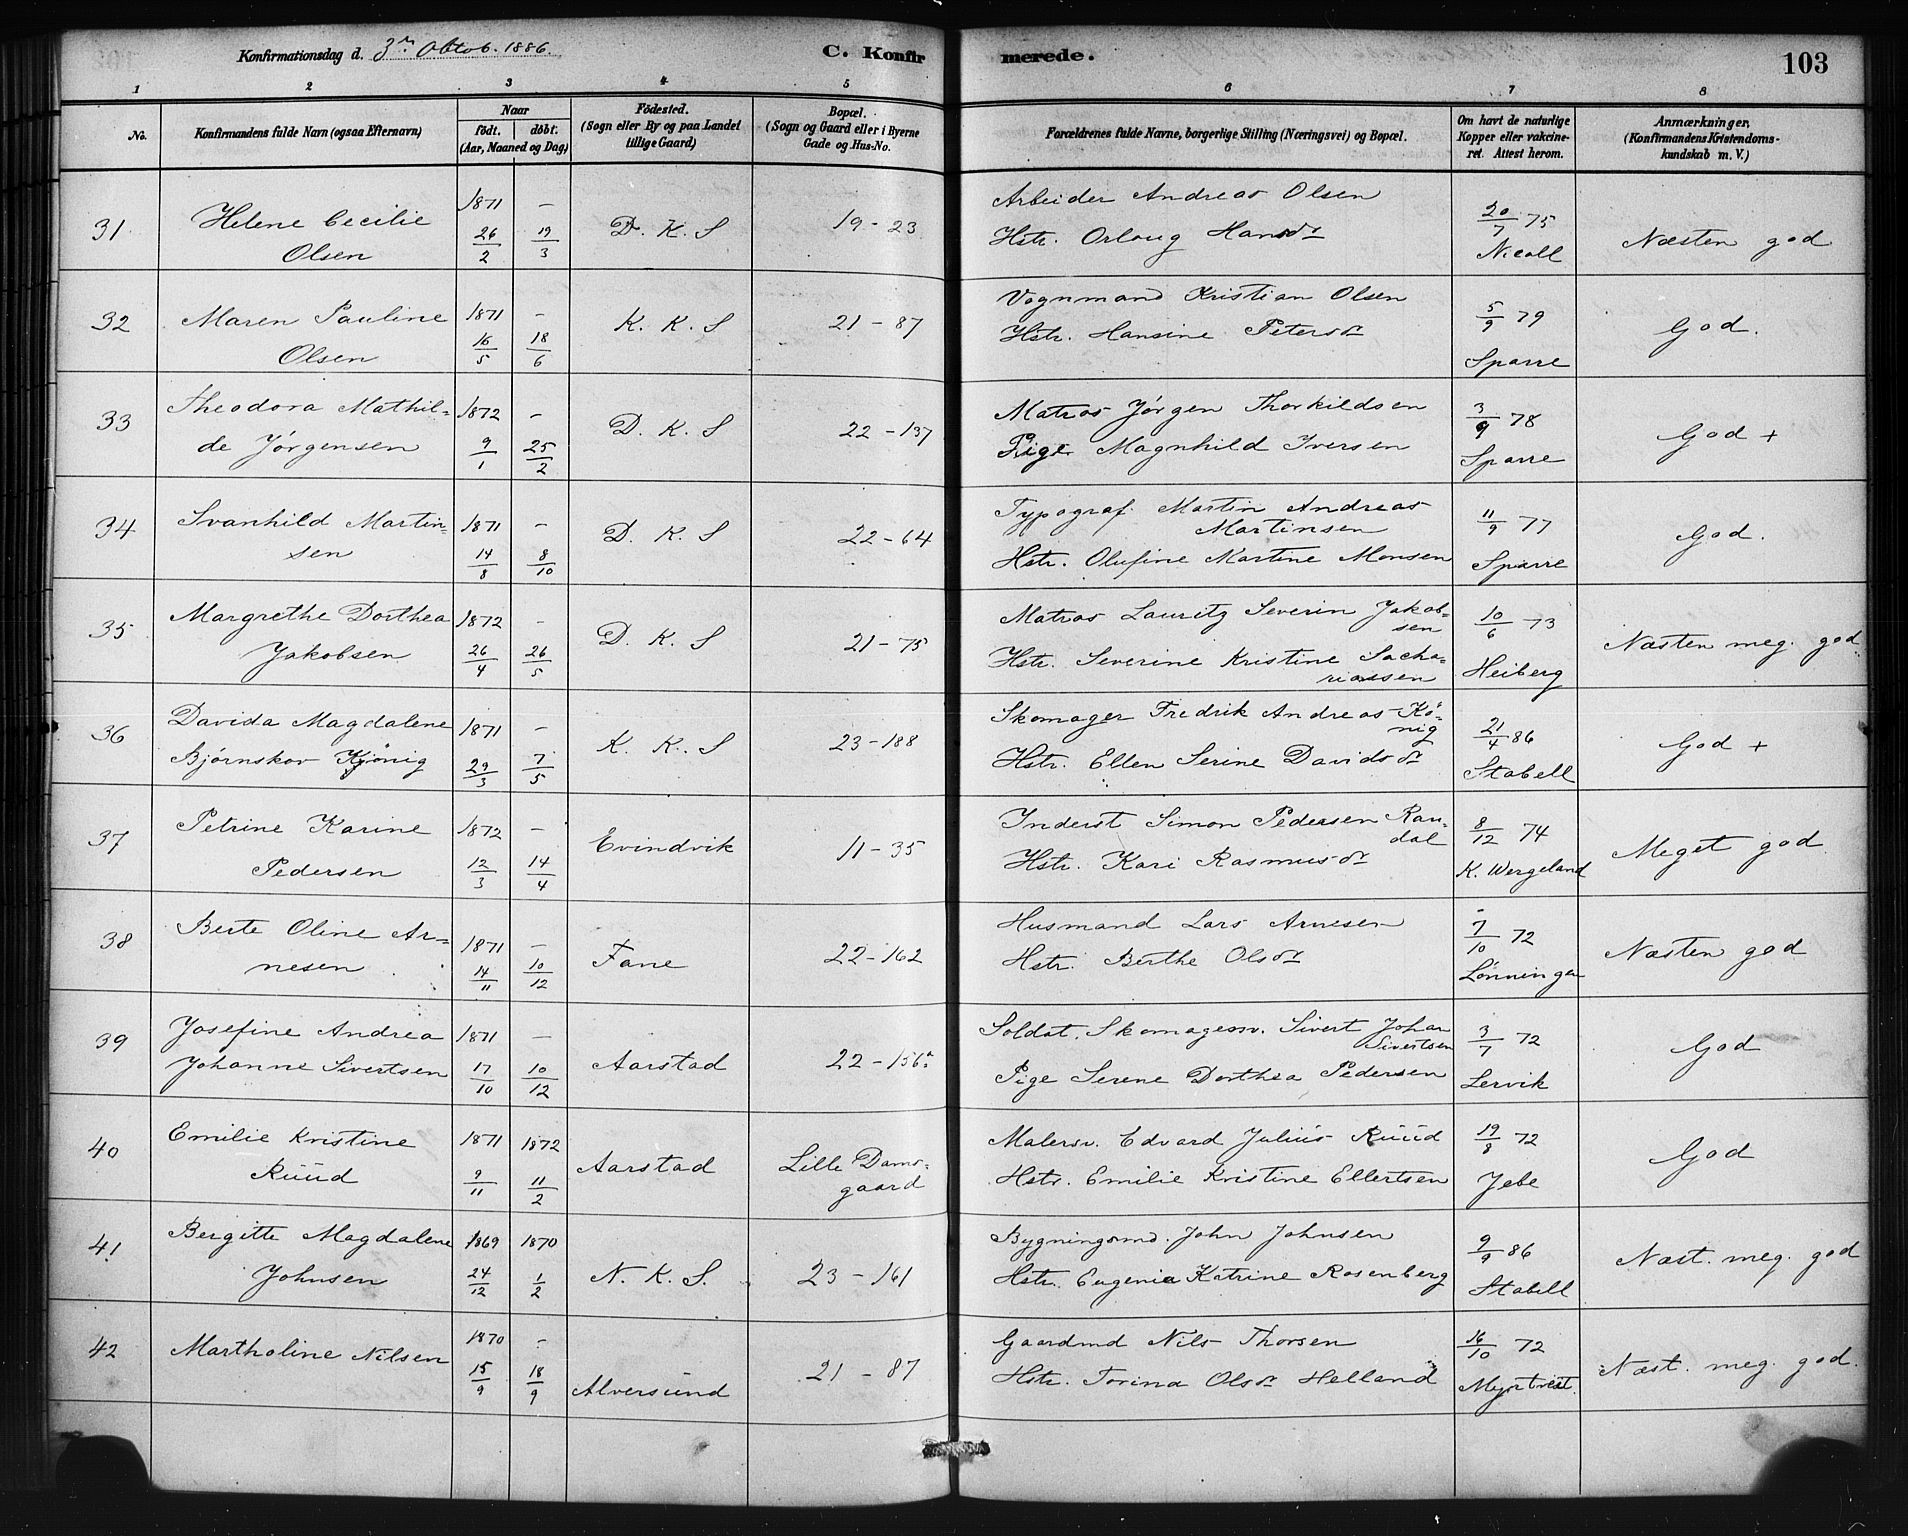 Konfirmationsdag d. 3die Oktob. 1886.
C. Konfirmerede.
103
1 2 3 4 5 6 7 8
No.
Konfirmandens fulde Navn (ogsaa Efternavn)
Naar
født. døbt.
(Aar, Maaned og Dag)
Fødested.
(Sogn eller By og paa Landet
tillige Gaard)
Bopæl.
(Sogn og Gaard eller i Byerne
Gade og Hus-No.
Forældrenes fulde Navne, borgerlige Stilling (Næringsvei) og Bopæl.
Om havt de naturlige
Kopper eller vakcine-
ret. Attest herom.
Anmærkninger.
(Konfirmandens Kristendoms-
kundskab m. V.)
31 Helene Cecilie 1871 – D. K. S 19 – 23 Arbeider Andreas Olsen 20/7 75
Olsen 26/2 19/3 Hstr. Orloug Hansdr Nicoll Næsten god
32 Maren Pauline 1871 – K. K. S 21 – 87 Vognmand Kristian Olsen 5/9 79
Olsen 16/5 18/6 Hstr. Hansine Petersdr Sparre God.
33 Theodora Mathil= 1872 – D. K. S 22 – 137 Matros Jørgen Thorkildsen 3/9 78
de Jørgensen 9/1 25/2 Pige Magnhild Iversen Sparre God +
34 Svanhild Martin= 1871 – D. K. S 22 – 64 Typograf Martin Andreas 11/9 77
Martinsen
sen 14/8 8/10 Hstr. Olufine Martine Monsen Sparre God.
35 Margrethe Dorthea 1872 – D. K. S 21 – 75 Matros Lauritz Severin Jakob= 10/6 73
sen
Jakobsen 26/4 26/5 Hstr. Severine Kristine Sacha= Heiberg Næsten meg. god.
riassen
36 Davida Magdalene 1871 – K. K. S 23 – 188 Skomager Fredrik Andreas Kö= 21/4 86
nig
Bjørnskov Kjönig 29/3 7/5 Hstr. Ellen Serine Davidsdr Stabell God +
37 Petrine Karine 1872 – Evindvik 11 – 35 Inderst Simon Pedersen Ran= 8/12 74
dal
Pedersen 12/3 14/4 Hstr. Kari Rasmusdr K. Wergeland Meget god
38 Berte Oline Ar= 1871 – Fane 22 – 162 Husmand Lars Arnesen 7/10 72
nesen 14/11 10/12 Hstr. Berthe Olsdr Lønningen Næsten god
39 Josefine Andrea 1871 – Aarstad 22 – 156a Soldat, Skomagersv. Sivert Johan 3/7 72
Sivertsen
Johanne Sivertsen 17/10 10/12 Pige Serene Dorthea Pedersen Lervik God
40 Emilie Kristine 1871 1872 Aarstad Lille Dams= Malersv. Edvard Julius Ruud 19/8 72
Ruud 9/11 11/2 gaard Hstr. Emilie Kristine Ellertsen Jebe God
41 Bergitte Magdalene 1869 1870 N. K. S. 23 – 161 Bygningsmd. John Johnsen 9/9 86
Johnsen 24/12 1/2 Hstr. Eugenia Katrine Rosenberg Stabell Næst. meg. god
42 Martholine Nilsen 1870 – Alversund 21 – 87 Gaardmd Nils Thorsen 16/10 72
15/9 18/9 Hstr. Torina Olsdr Helland Myrtvedt. Næst. meg. god.